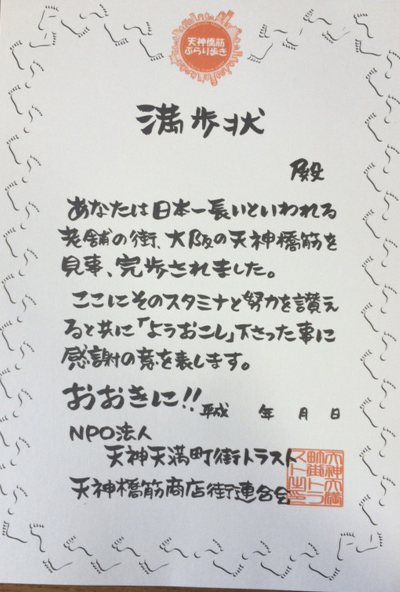 天神橋筋
ぶらり歩き
満歩状
殿
あなたは日本一長いといわれる
老舗の街、大阪の天神橋筋を
見事、完歩されました。
ここにそのスタミナと努力を讃え
ると共に「ようおこし」下さった事に
感謝の意を表します。
おおきに!!
平成 年 月 日
NPO法人
天神天満町街トラスト
天神橋筋商店街連合会